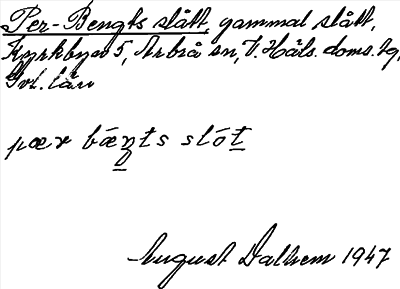 Per-Bengts slått, gammal slått,
Kyrkbyn 5, Arbrå sn, V. Häls. doms. tg,
Gvl. län
pær bæŋts slót
August Dalhem 1947